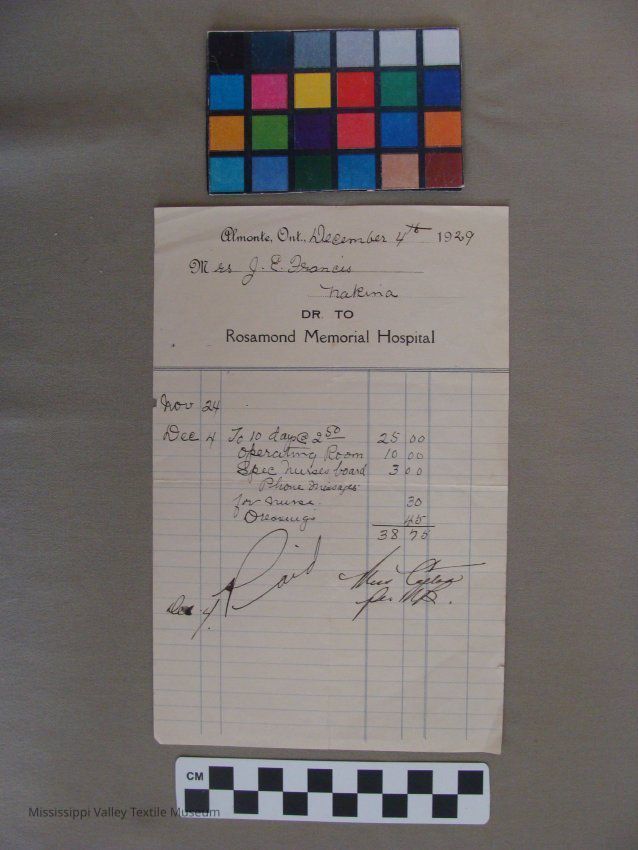 Almonte, Ont., December 4th 1929
Mrs J. E. Francis
Nakina
DR. TO
Rosamond Memorial Hospital
Nov 24
Dec 4 To 10 days @ 2 50 25 00
Operating Room 10 00
Spec nurses board 3 00
Phone messages
for nurse. 30
Dressings 45
38 75
Paid
Dec 4.
Miss
per
CM
Mississippi Valley Textile Museum